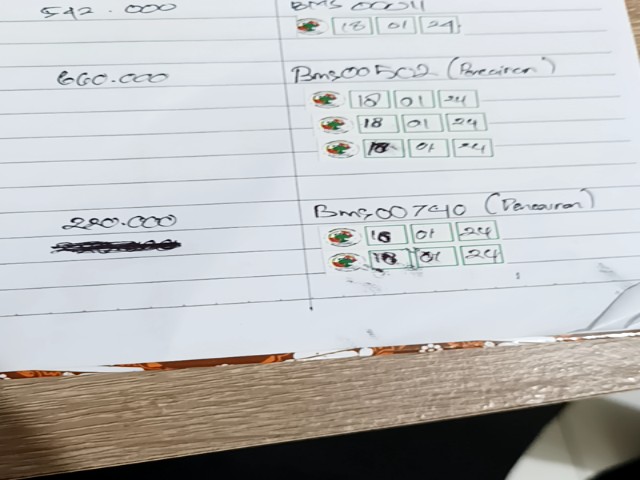 542.000 BMS 00011
18 01 24
660.000 Bms00502 (Pencairan)
18 01 24
18 01 24
18 01 24
220.000 Bms00740 (Pencairan)
18 01 24
18 01 24